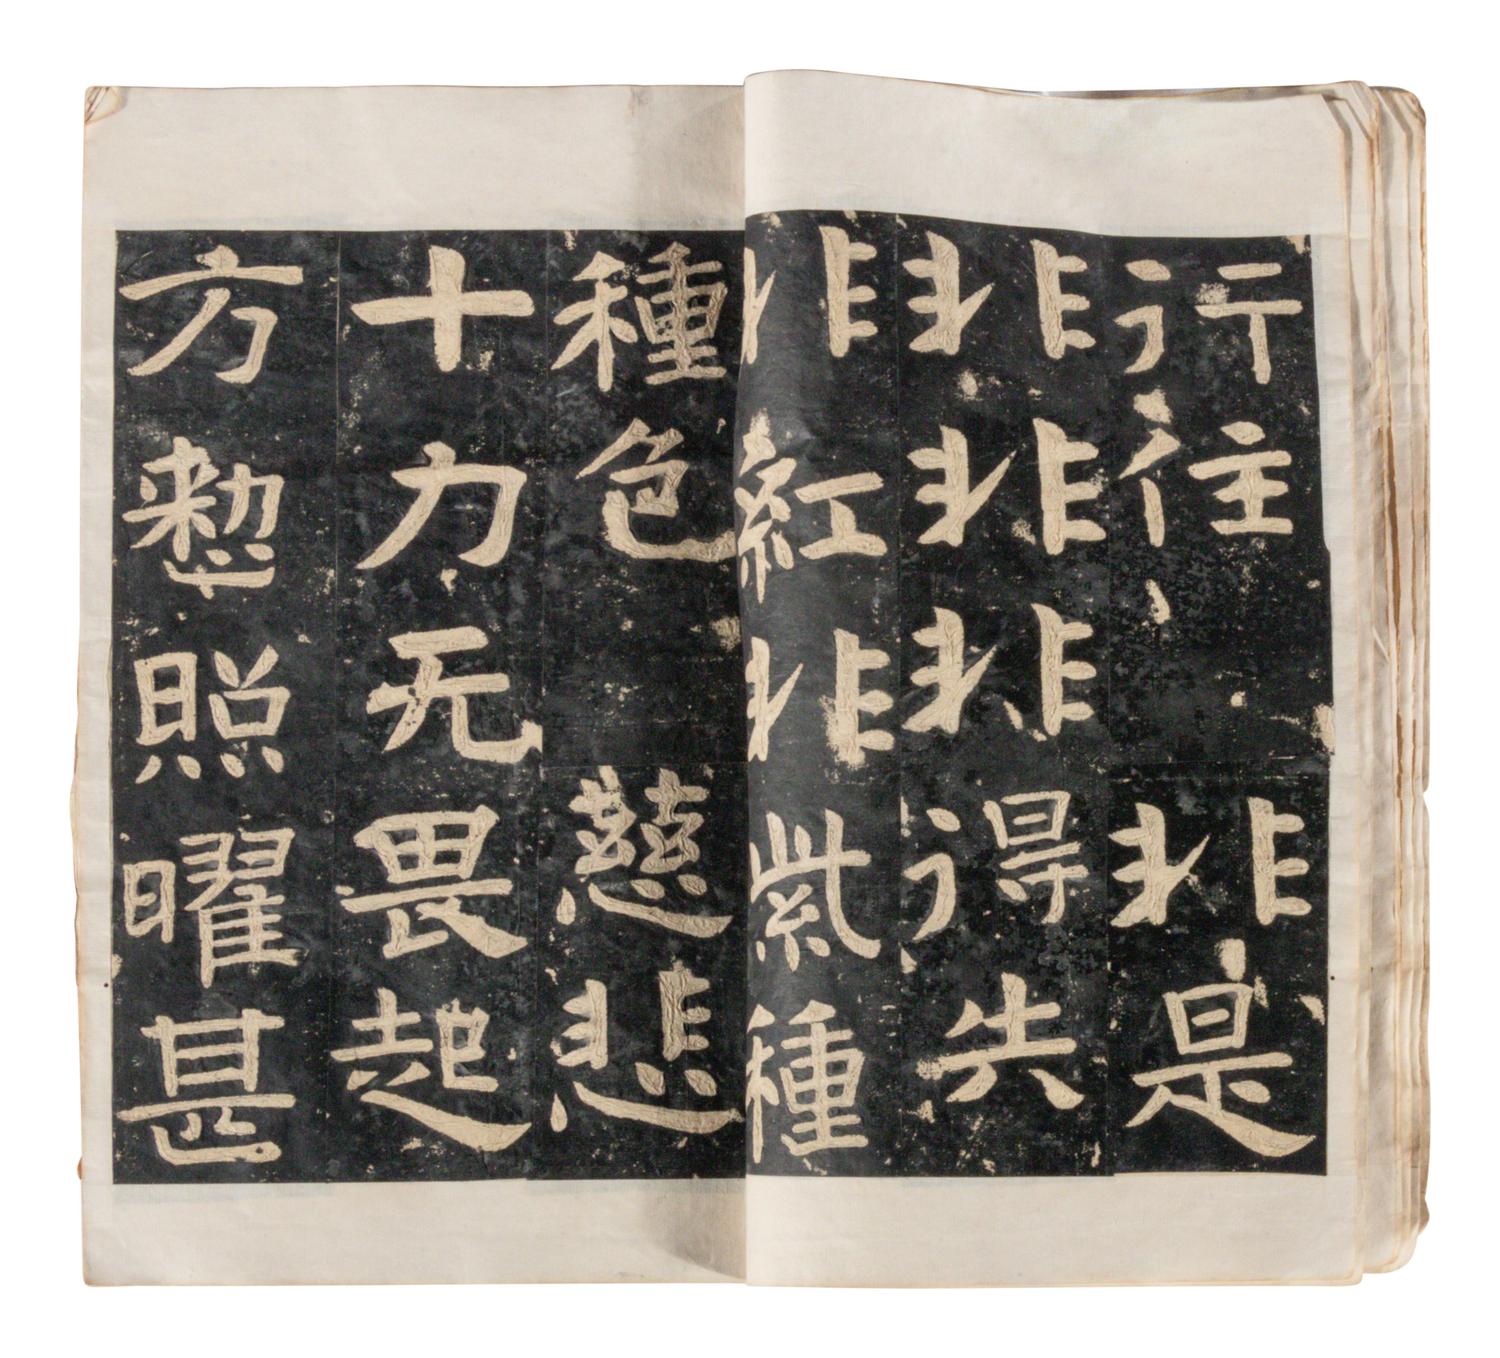 行住非是
非非非得失
非紅非紫種
種色慈悲
十力无畏起
方整照曜甚